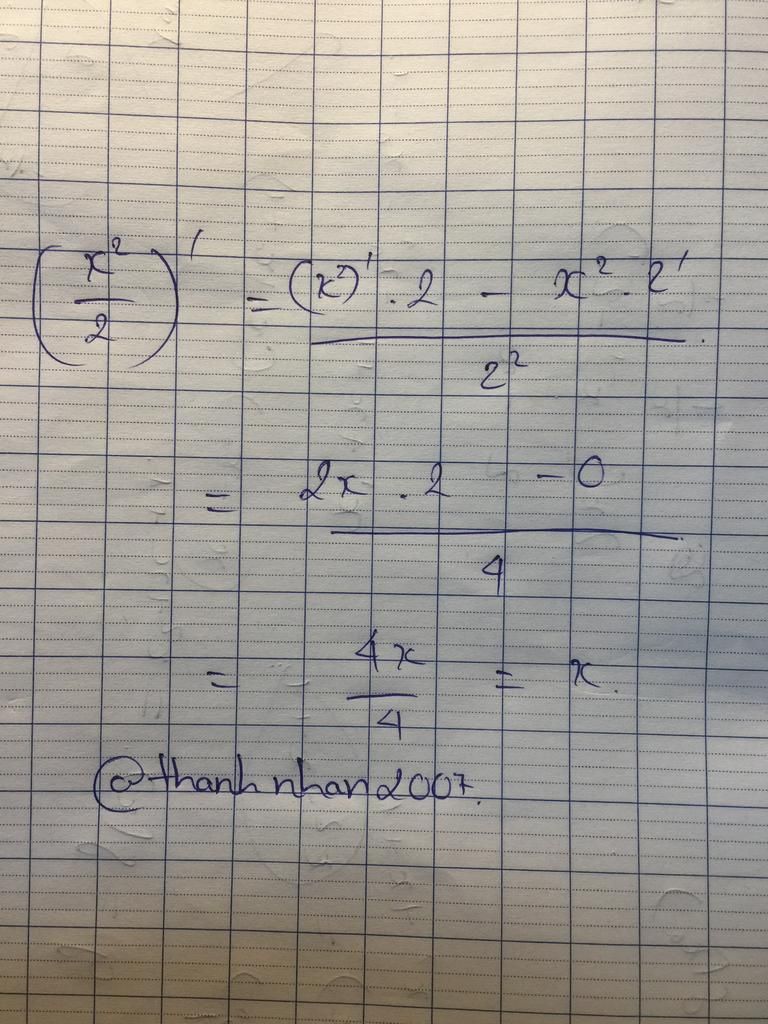 (x²/2)' = ((x²)' . 2 - x² . 2')/2²
= (2x . 2 - 0)/4
= 4x/4 = x.
@thanhnhan2007.